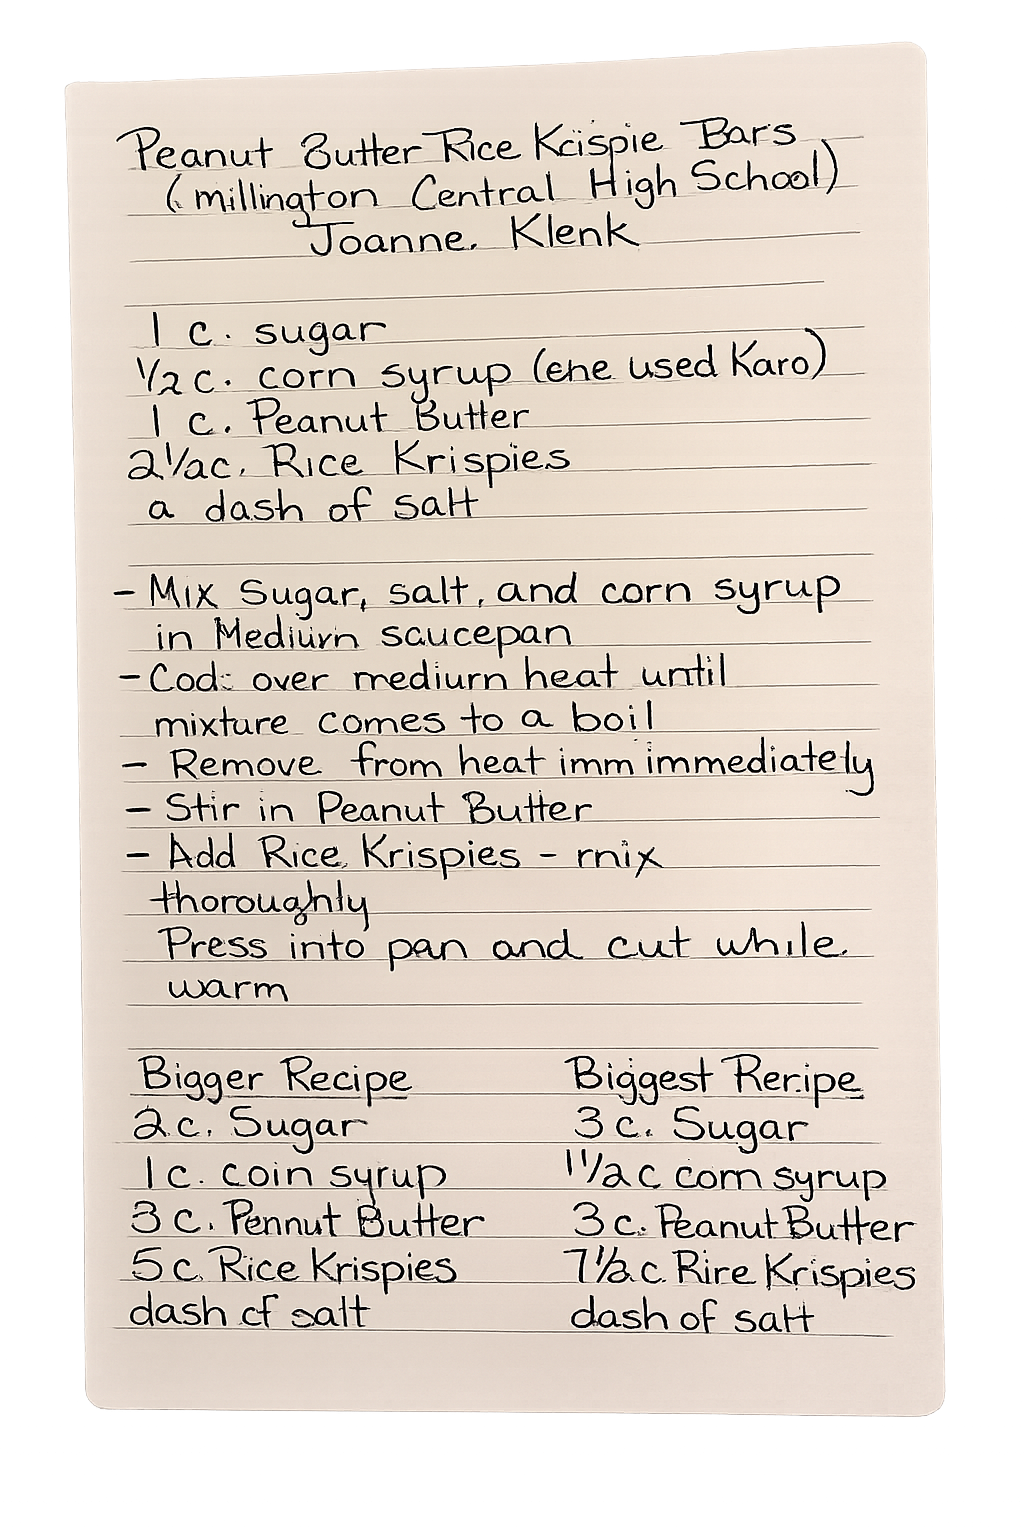 Peanut Butter Rice Kcispie Bars
(millington Central High School)
Joanne. Klenk
1 c. sugar
1/2 c. corn syrup (ene used Karo)
1 c. Peanut Butter
2 1/2c. Rice Krispies
a dash of salt
- Mix Sugar, salt, and corn syrup
in Mediurn saucepan
- Cod: over mediurn heat until
mixture comes to a boil
- Remove from heat imm immediately
- Stir in Peanut Butter
- Add Rice Krispies - rnix
thoroughly
Press into pan and cut while.
warm
Bigger Recipe
2 c. Sugar
1 c. coin syrup
3 c. Pennut Butter
5 c. Rice Krispies
dash cf salt
Biggest Reripe
3 c. Sugar
1 1/2 c corn syrup
3 c. Peanut Butter
7 1/2 c. Rire Krispies
dash of salt